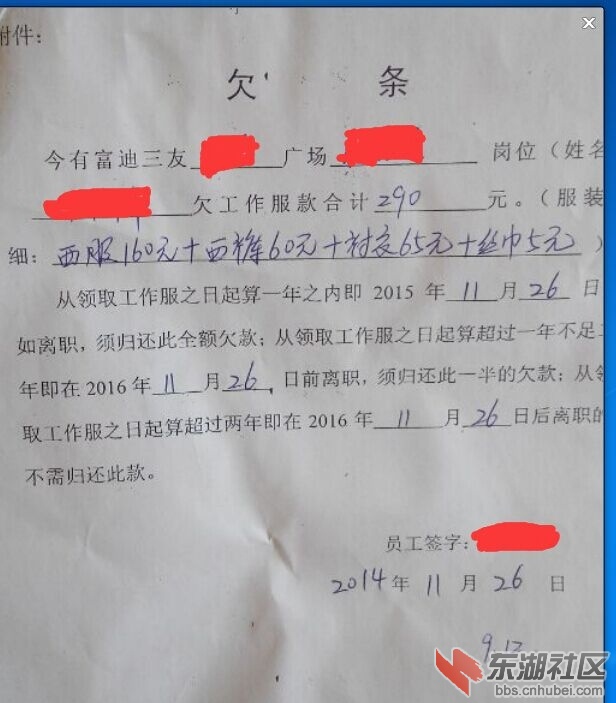 附件：
欠 条
今有富迪三友 广场 岗位（姓名
欠工作服款合计290 元。（服装
细：西服160元+西裤60元+衬衣65元+丝巾5元 ）
从领取工作服之日起算一年之内即 2015 年 11 月 26 日
如离职，须归还此全额欠款；从领取工作服之日起算超过一年不足
年即在 2016 年 11 月 26 日前离职，须归还此一半的欠款；从领
取工作服之日起算超过两年即在 2016 年 11 月 26 日后离职的
不需归还此款。
员工签字：
2014 年 11 月 26 日
9.12
东湖社区
bbs.cnhubei.com